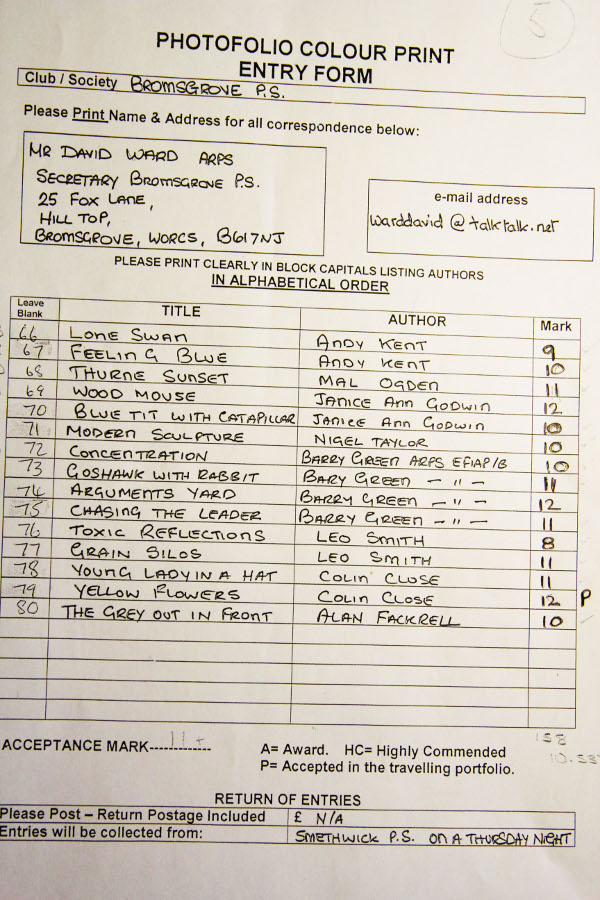 5
PHOTOFOLIO COLOUR PRINT
ENTRY FORM
Club / Society BROMSGROVE P.S.
Please Print Name & Address for all correspondence below:
MR DAVID WARD ARPS
SECRETARY BROMSGROVE P.S.
25 FOX LANE,
HILL TOP,
BROMSGROVE, WORCS, B617NJ
e-mail address
warddavid@talktalk.net
PLEASE PRINT CLEARLY IN BLOCK CAPITALS LISTING AUTHORS
IN ALPHABETICAL ORDER
Leave Blank TITLE AUTHOR Mark
66 LONE SWAN ANDY KENT 9
67 FEELING BLUE ANDY KENT 10
68 THURNE SUNSET MAL OGDEN 11
69 WOOD MOUSE JANICE ANN GODWIN 12
70 BLUE TIT WITH CATAPILLAR JANICE ANN GODWIN 10
71 MODERN SCULPTURE NIGEL TAYLOR 10
72 CONCENTRATION BARRY GREEN ARPS EFIAP/B 10
73 GOSHAWK WITH RABBIT BARY GREEN — " — 11
74 ARGUMENTS YARD BARRY GREEN — " — 12
75 CHASING THE LEADER BARRY GREEN — " — 11
76 TOXIC REFLECTIONS LEO SMITH 8
77 GRAIN SILOS LEO SMITH 11
78 YOUNG LADY IN A HAT COLIN CLOSE 11
79 YELLOW FLOWERS COLIN CLOSE 12 P
80 THE GREY OUT IN FRONT ALAN FACKRELL 10
158
ACCEPTANCE MARK-----11+------ A= Award. HC= Highly Commended
P= Accepted in the travelling portfolio.
RETURN OF ENTRIES
Please Post – Return Postage Included £ N/A
Entries will be collected from: SMETHWICK P.S. ON A THURSDAY NIGHT